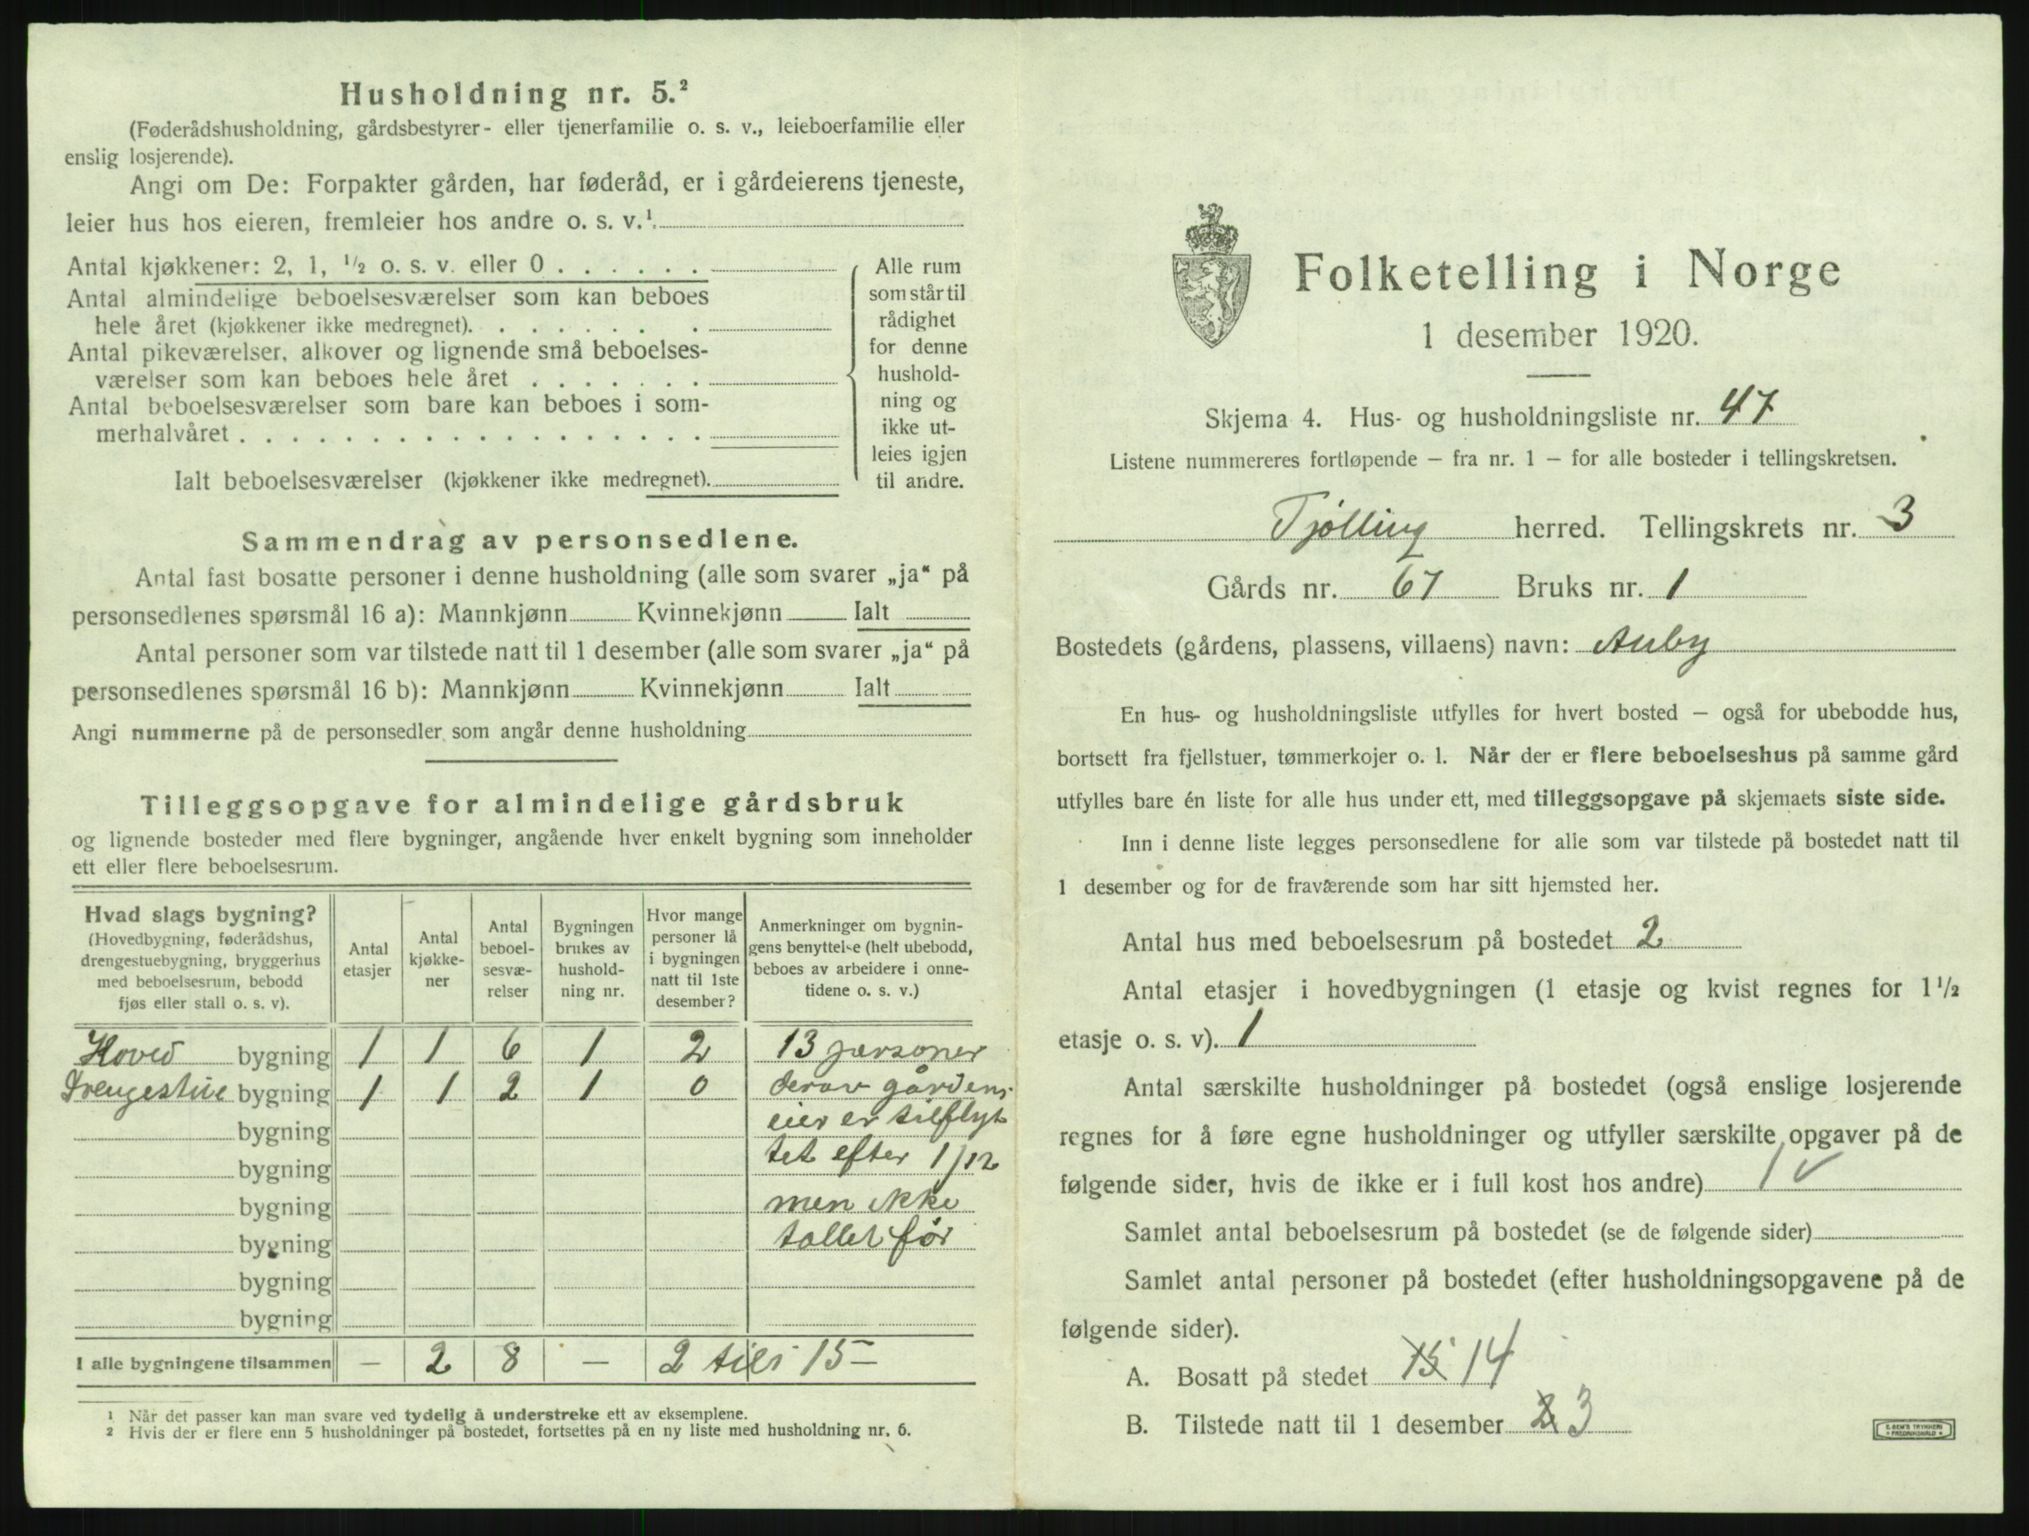 Husholdning nr. 5.²
(Føderådshusholdning, gårdsbestyrer- eller tjenerfamilie o. s. v., leieboerfamilie eller
enslig losjerende).
Angi om De: Forpakter gården, har føderåd, er i gårdeierens tjeneste,
leier hus hos eieren, fremleier hos andre o. s. v.¹.
Antal kjøkkener: 2, 1, ½ o. s. v. eller 0 . . . . . .
Antal almindelige beboelsesværelser som kan beboes
hele året (kjøkkener ikke medregnet). . . . . . . .
Antal pikeværelser, alkover og lignende små beboelses-
værelser som kan beboes hele året . . . . . . .
Antal beboelsesværelser som bare kan beboes i som-
merhalvåret . . . . . . . . . . . . . . . . . .
Ialt beboelsesværelser (kjøkkener ikke medregnet).
Alle rum
som står til
rådighet
for denne
hushold-
ning og
ikke ut-
leies igjen
til andre.
Sammendrag av personsedlene.
Antal fast bosatte personer i denne husholdning (alle som svarer „ja“ på
personsedlenes spørsmål 16 a): Mannkjønn Kvinnekjønn Ialt
Antal personer som var tilstede natt til 1 desember (alle som svarer „ja“ på
personsedlenes spørsmål 16 b): Mannkjønn Kvinnekjønn Ialt
Angi nummerne på de personsedler som angår denne husholdning
Tilleggsopgave for almindelige gårdsbruk
og lignende bosteder med flere bygninger, angående hver enkelt bygning som inneholder
ett eller flere beboelsesrum.
Hvad slags bygning?
(Hovedbygning, føderådshus,
drengestuebygning, bryggerhus
med beboelsesrum, bebodd
fjøs eller stall o. s. v).
Antal
etasjer
Antal
kjøkke-
ner
Antal
beboel-
sesvæ-
relser
Bygningen
brukes av
hushold-
ning nr.
Hvor mange
personer lå
i bygningen
natt til 1ste
desember?
Anmerkninger om bygnin-
gens benyttelse (helt ubebodd,
beboes av arbeidere i onne-
tidene o. s. v.)
Hoved bygning 1 1 6 1 2 13 personer
Drengestue bygning 1 1 2 1 0 derav gårdens
bygning eier er tilflyt
bygning tet efter 1/12
bygning men ikke
bygning tallet før
bygning
bygning
I alle bygningene tilsammen — 2 8 — 2 15 —
¹ Når det passer kan man svare ved tydelig å understreke ett av eksemplene.
² Hvis der er flere enn 5 husholdninger på bostedet, fortsettes på en ny liste med husholdning nr. 6.
Folketelling i Norge
1 desember 1920.
Skjema 4. Hus- og husholdningsliste nr. 47
Listene nummereres fortløpende – fra nr. 1 – for alle bosteder i tellingskretsen.
Tjølling herred. Tellingskrets nr. 3
Gårds nr. 67 Bruks nr. 1
Bostedets (gårdens, plassens, villaens) navn: Auby
En hus- og husholdningsliste utfylles for hvert bosted – også for ubebodde hus,
bortsett fra fjellstuer, tømmerkojer o. l. Når der er flere beboelseshus på samme gård
utfylles bare én liste for alle hus under ett, med tilleggsopgave på skjemaets siste side.
Inn i denne liste legges personsedlene for alle som var tilstede på bostedet natt til
1 desember og for de fraværende som har sitt hjemsted her.
Antal hus med beboelsesrum på bostedet 2
Antal etasjer i hovedbygningen (1 etasje og kvist regnes for 1½
etasje o. s. v). 1
Antal særskilte husholdninger på bostedet (også enslige losjerende
regnes for å føre egne husholdninger og utfyller særskilte opgaver på de
følgende sider, hvis de ikke er i full kost hos andre) 1 ✓
Samlet antal beboelsesrum på bostedet (se de følgende sider)
Samlet antal personer på bostedet (efter husholdningsopgavene på de
følgende sider).
A. Bosatt på stedet 15 14
B. Tilstede natt til 1 desember 2 3